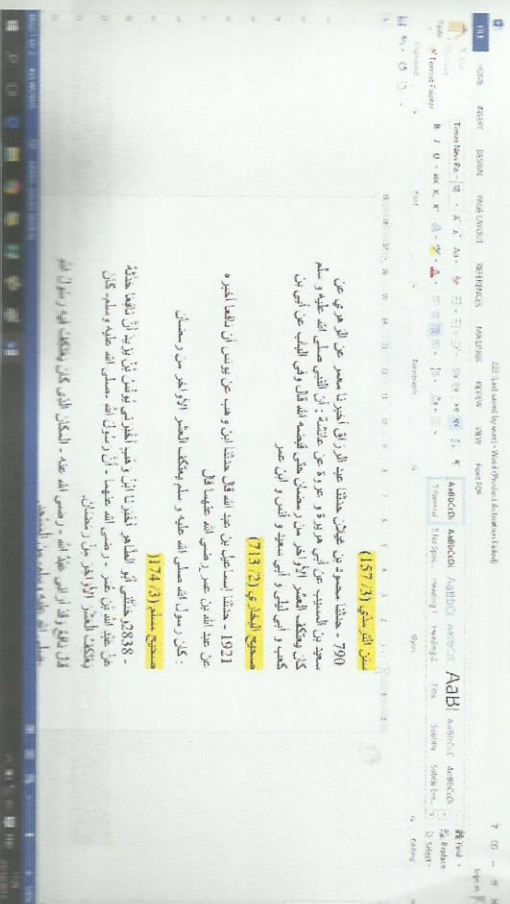 222 (Last saved by user) - Word (Product Activation Failed)
FILE HOME INSERT DESIGN PAGE LAYOUT REFERENCES MAILINGS REVIEW VIEW Foxit PDF
Sign in
Times New Ro
Paste
Format Painter
B I U
Clipboard Font Paragraph Styles Editing
AaBbCcDc AaBbCcDc AaBbCc AaBbCcC AaBl AaBbCcC AaBbCcDc
1 Normal 1 No Spac... Heading 1 Heading 2 Title Subtitle Subtle Em...
Find
Replace
Select
سنن الترمذي (3/ 157)
790 - حدثنا محمود بن غيلان حدثنا عبد الرزاق أخبرنا معمر عن الزهري عن
سعيد بن المسيب عن أبي هريرة و عروة عن عائشة : أن النبي صلى الله عليه و سلم
كان يعتكف العشر الأواخر من رمضان حتى قبضه الله قال وفي الباب عن أبي بن
كعب و أبي ليلى و أبي سعيد و أنس و ابن عمر
صحيح البخاري (2/ 713)
1921 - حدثنا إسماعيل بن عبد الله قال حدثنا ابن وهب عن يونس أن نافعا أخبره
عن عبد الله بن عمر رضي الله عنهما قال
: كان رسول الله صلى الله عليه و سلم يعتكف العشر الأواخر من رمضان
صحيح مسلم (3/ 174)
2838- وحدثنى أبو الطاهر أخبرنا ابن وهب أخبرنى يونس بن يزيد أن نافعا حدثه
عن عبد الله بن عمر - رضى الله عنهما - أن رسول الله -صلى الله عليه وسلم- كان
يعتكف العشر الأواخر من رمضان.
قال نافع وقد أرانى عبد الله - رضى الله عنه - المكان الذى كان يعتكف فيه رسول الله
صلى الله عليه وسلم- من المسجد